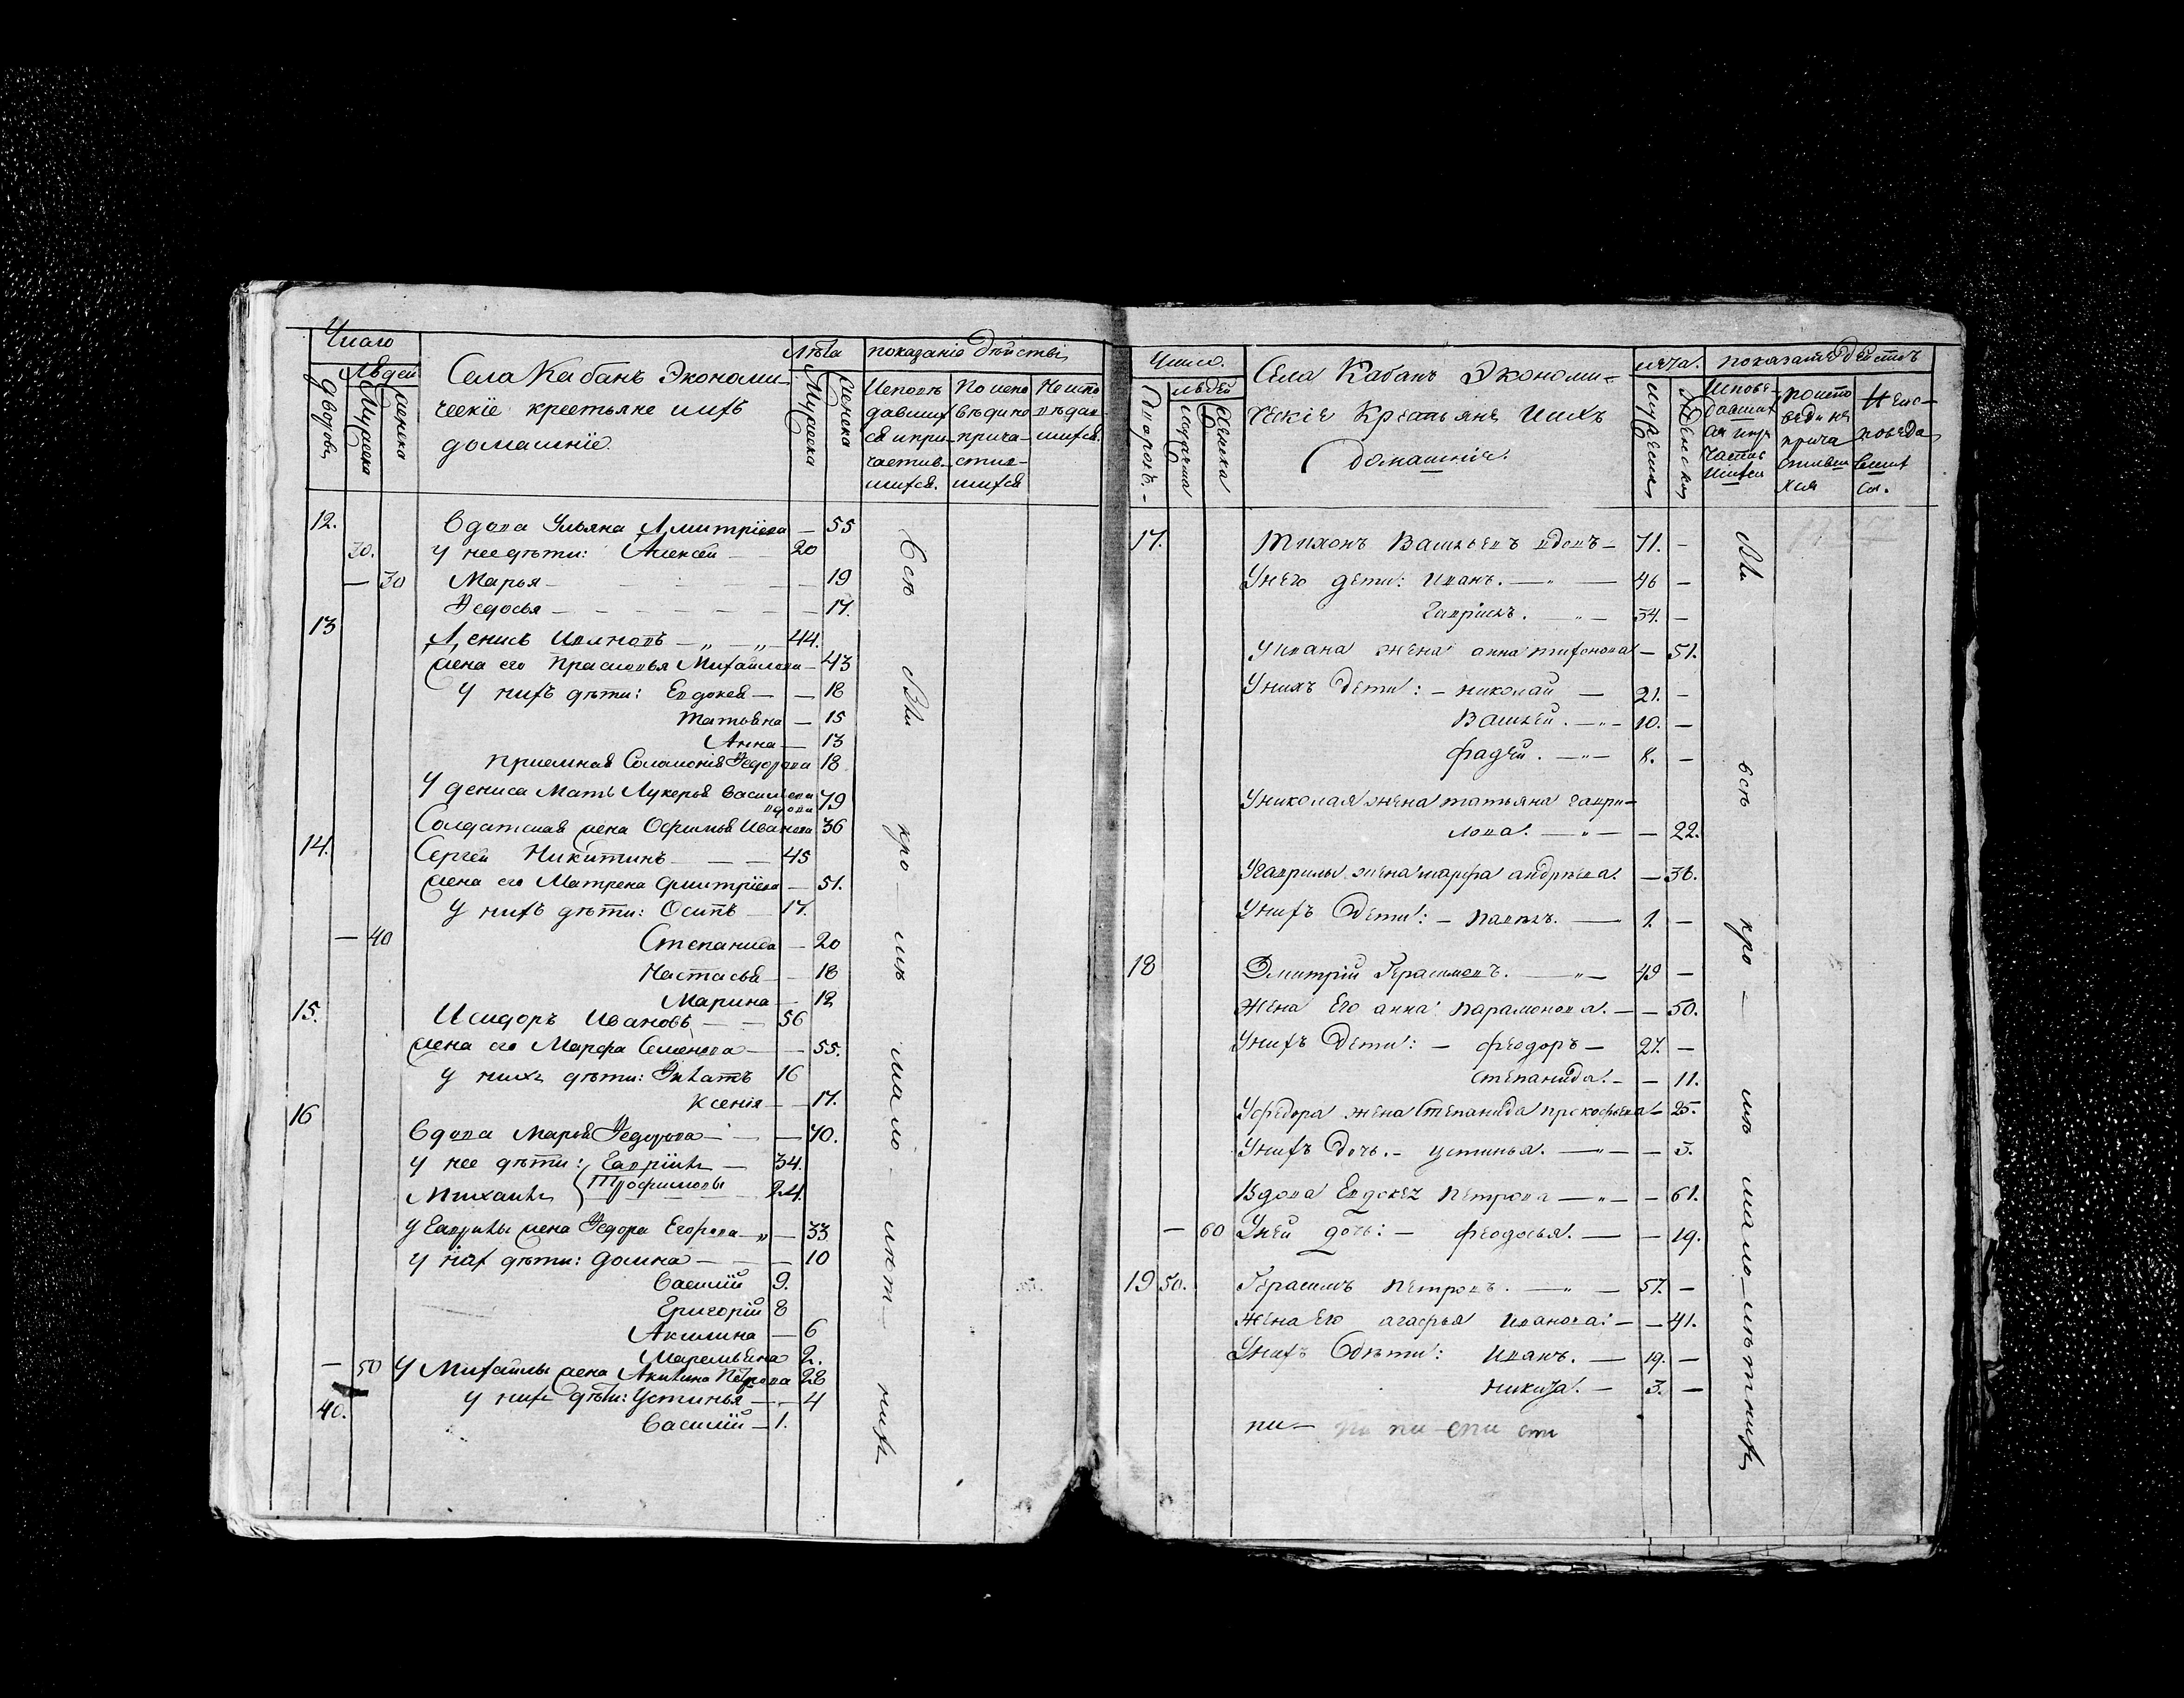 Число
Людей
Дворовъ
Мужеска
Женска
Села Кабанъ Экономи-
ческіе крестьяне ихъ
домашніе.
Лѣта
Мужеска
Женска
показаніе дѣйствія
Исповѣ
давших
ся и при
частив-
шихся.
По испо
вѣди не
прича-
стив-
шихся
Не испо
вѣдав-
шихся.
12. Вдова Ульяна Дмитріева — 55
30. У нее дѣти: Алексей — 20
— 30 Марья — 19
Федосья — 17.
13 Денисъ Ивановъ — 44.
жена его Прасковья Михайлова — 43
У нихъ дѣти: Евдокея — 18
Татьяна — 15
Анна — 13
приемная Соломонія Федорова 18
У Дениса мать Лукерья Васильева
вдова 79
Солдатская жена Офимья Иванова 36
14. Сергей Никитинъ — 45
жена его Матрена Дмитріева — 51.
У нихъ дѣти: Осипъ — 17.
— 40 Степанида — 20
Настасья — 18
Марина — 12
15. Исидоръ Ивановъ — 56
жена его Марфа Семенова — 55.
У нихъ дѣти: 16
Ксенія — 17.
16 Вдова Марья Федорова — 70.
У нее дѣти: Гаврiилъ — 34.
Михаилъ Трофимовы 24.
У Гаврилы жена Федора Егорова — 33
У них дѣти: Домна — 10
Василій 9.
Григорій 8
Акилина — 6
Маремьяна 2.
— 50 У Михайлы жена Акилина Петрова 28
У них дѣти: Устинья — 4
40. Василій — 1.
Всѣ
Вы
кро
мѣ
мало
лѣт
нихъ
Число.
Людей
Дворовъ.
мужеска
женска
Села Кабанъ Экономи-
ческіе Крестьяне ихъ
домашніе.
лета.
мужеска
женска
показаніе действъ
Испове-
давших
ся и при
частив
шихся
по испо
веди не
прича
стивши
хся
Неис-
поведа
вших
ся.
17. Тихонъ Васильевъ вдовъ — 71. —
У него дети: Иванъ. — 46 —
Гаврiилъ. — 34. —
У Ивана жена анна тифонова — 51.
У нихъ дети: — николай — 21. —
Василей. — 10. —
фадей. — 8. —
У николая жена татьяна гаври-
лова. — 22.
У гаврилы жена марфа андреева. — 36.
У нихъ дети: — павелъ. — 1. —
18 Дмитрій Герасимовъ. — 49 —
Жена Его анна парамонова. — 50.
У нихъ дети: — феодоръ — 27. —
степанида. — 11.
У федора жена Степанида прокофьева — 25.
У нихъ дочь. — устинья. — 3.
Вдова Евдокея петрова — 61.
— 60 У ней дочь: — феодосья. — 19.
19 50. Герасимъ петровъ. — 57. —
Жена Его агафья иванова: — 41.
У нихъ дѣти: иванъ. — 19. —
никита. — 3. —
пи— пи пи спи сти
Вы
всѣ
кро
мѣ
мало-лѣтнихъ